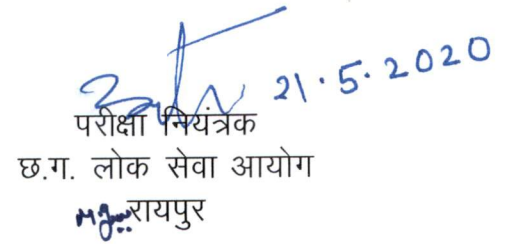 21.5.2020
परीक्षा नियंत्रक
छ.ग. लोक सेवा आयोग
रायपुर